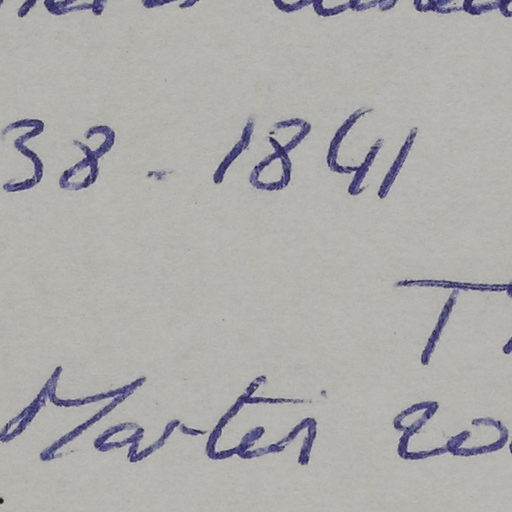 38 - 1841
T
Martin 20